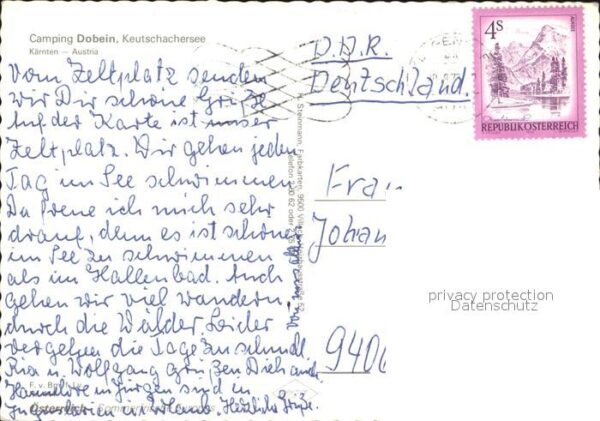 Camping Dobein, Keutschachersee
Kärnten — Austria
Vom Zeltplatz senden
wir Dir schöne Grüße
Auf der Karte ist unser
Zeltplatz. Wir gehen jeden
Tag im See schwimmen
Da freue ich mich sehr
drauf, denn es ist schöner
im See zu schwimmen
als im Hallenbad. Auch
gehen wir viel wandern
durch die Wälder. Leider
vergehen die Tage zu schnell
Ria u. Wolfgang grüßen Dich auch
Hannelore u. Jürgen sind in
Jugoslawien in Urlaub Herzliche Grüße.
von uns allen
F. v.
Österreich
D.D.R.
Deutschland.
4S
REPUBLIK ÖSTERREICH
Frau
Johan
9400
privacy protection
Datenschutz